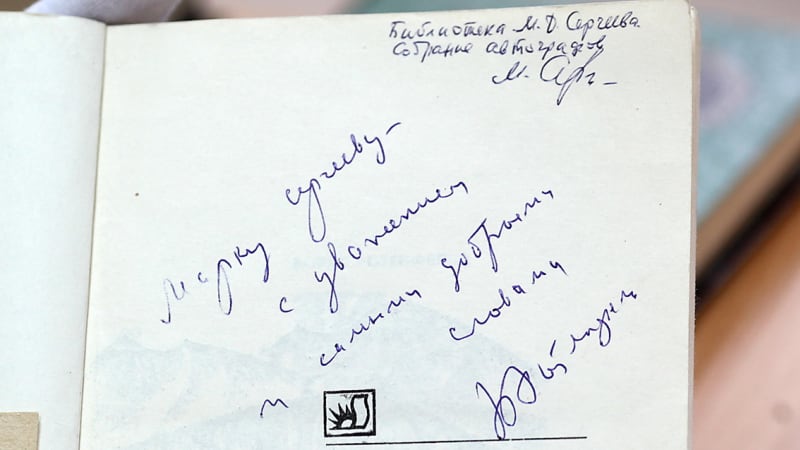 Библиотека М.Д. Сергеева
Собрание автографов
М. Сер
Марку Сергееву –
с уважением
и самыми добрыми
словами